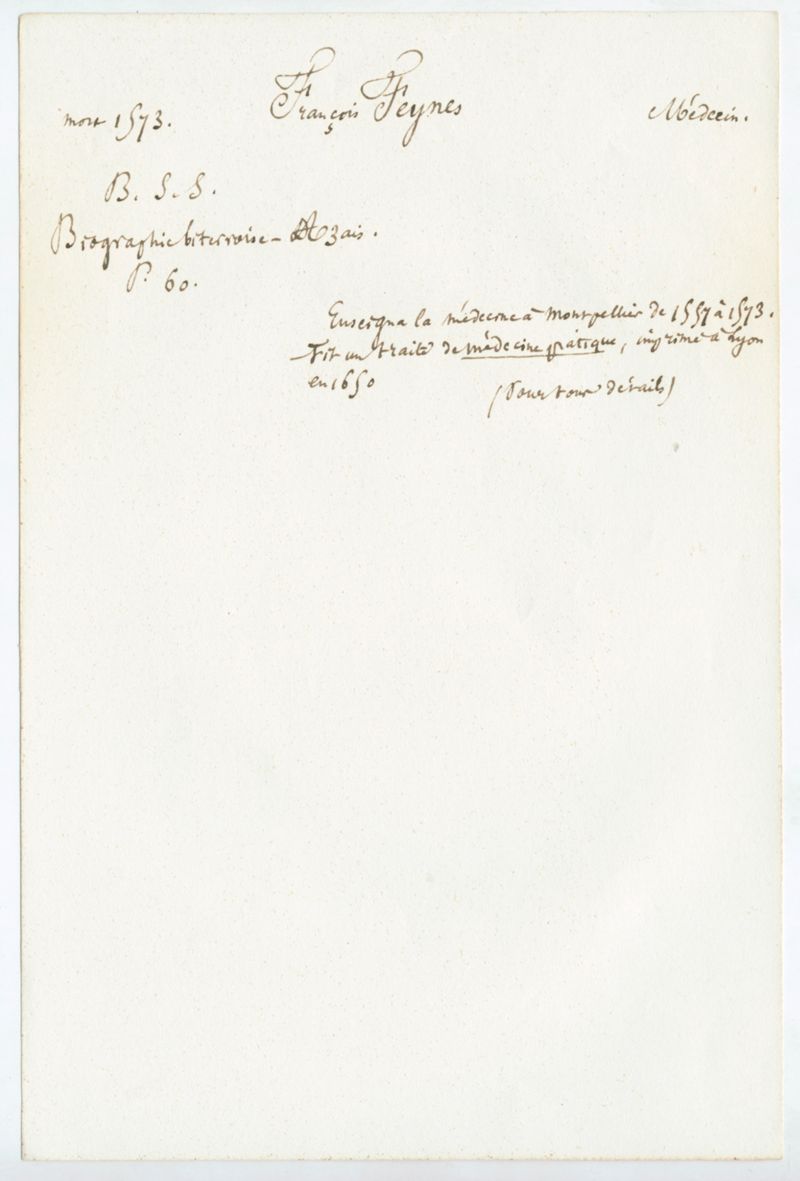 mort 1573. François Feynes Médecin.
B. S. S.
Biographie biterroise - Azais.
P. 60.
Enseigna la médecine à Montpellier de 1557 à 1573.
Fit un traité de médecine pratique, imprimé à Lyon
en 1650
(Pour tous détails)